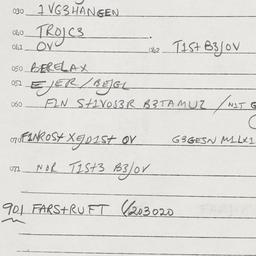 030 1VG3HANGEN
040 TROJC3
041 OV 042 T1St B3/OV
050 BERELAX
052 EJER/BEJGL
060 F1N S+1VOS3R B3TAMUZ /N1T G
070 F1NROSt XEJD1St OV G3GESN M1LX1
072 NOR T1St3 B3/OV
901 FARS+RUFT 1/203020